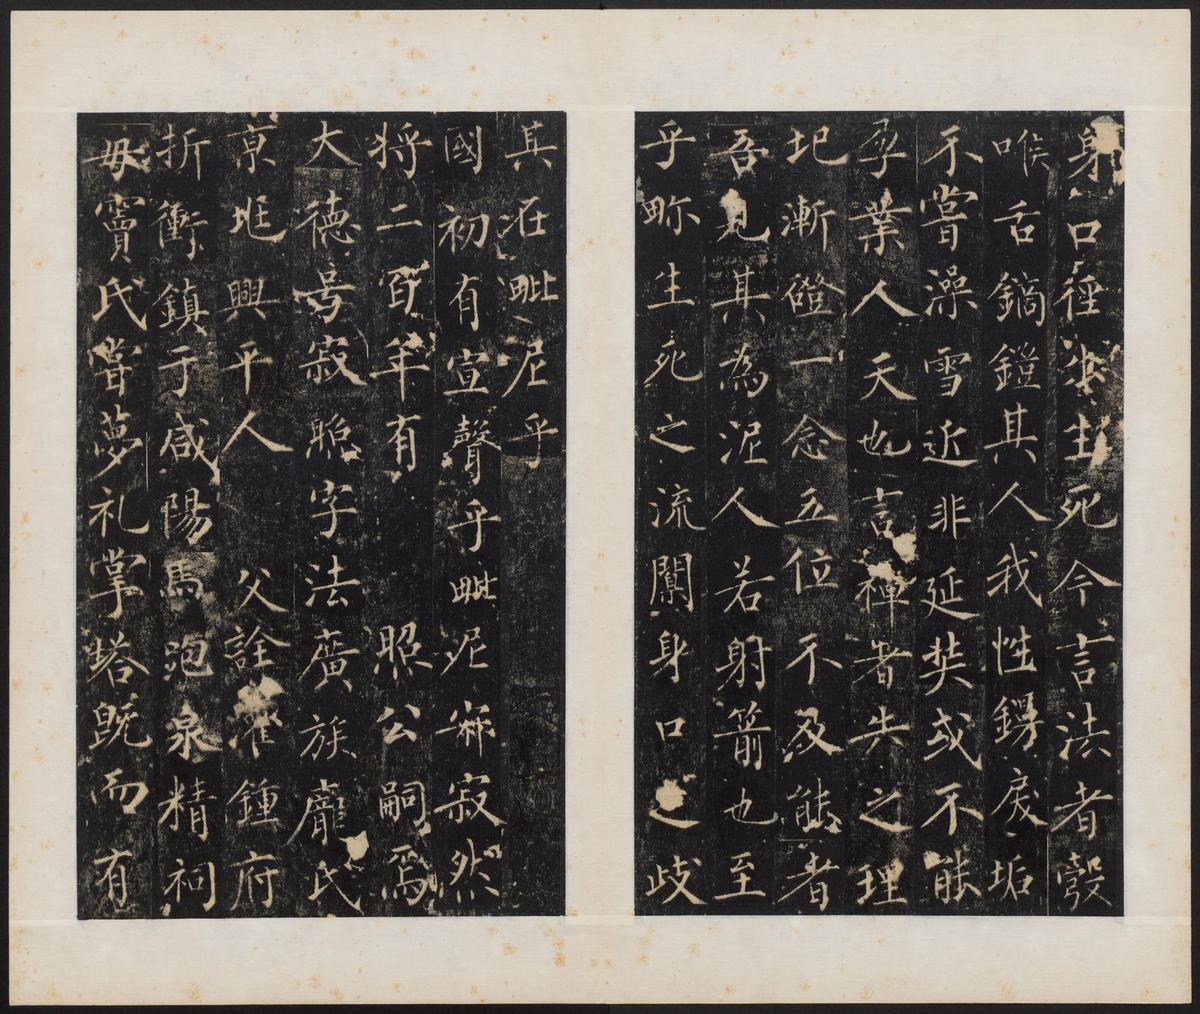 身口徑生死今言法者彀
喉舌鏑鎧其人我性戾垢
不嘗澡雪近非延奘或不能
孕業人天也言禪者失之理
圯漸磴一念五位不及能者
吾見其為泥人若射箭也至
乎畛生死之流闡身口之歧
其在毗尼乎
國初有宣聲乎毗尼寂然
將二百年有 照公嗣焉
大德号寂照字法廣族龐氏
京兆興平人 父詮灌鍾府
折衝鎮于咸陽馬跑泉精祠
母竇氏嘗夢礼掌塔既而有